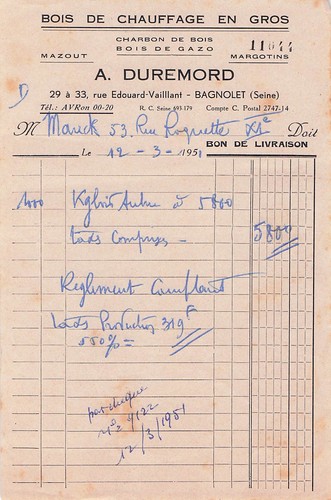 BOIS DE CHAUFFAGE EN GROS
CHARBON DE BOIS
BOIS DE GAZO
MAZOUT
MARGOTINS
A. DUREMORD
29 à 33, rue Edouard-Vaillant - BAGNOLET (Seine)
Tél.: AVRon 00-20 R. C. Seine 693-179 Compte C. Postal 2747-14
M 53 Rue Roquette XIe Doit
BON DE LIVRAISON
Le 12 - 3 - 1951
1000 Kg bois à 5800
Taxes Comprises - 5800
Règlement Comptant
Taxes Production 319 F
550% =
par chèque
N° 4122
12/3/1951